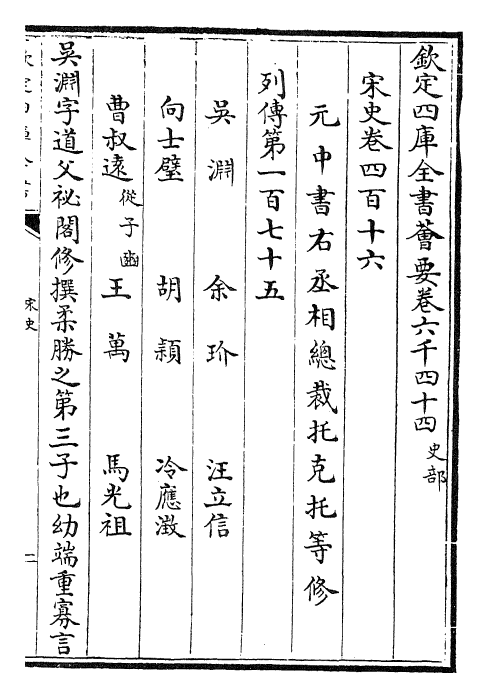 欽定四庫全書薈要卷六千四十四 史部
宋史卷四百十六
元中書右丞相總裁托克托等修
列傳第一百七十五
吳淵 余玠 汪立信
向士璧 胡穎 冷應澂
曹叔遠 從子豳 王萬 馬光祖
吳淵字道父祕閣修撰柔勝之第三子也幼端重寡言
宋史